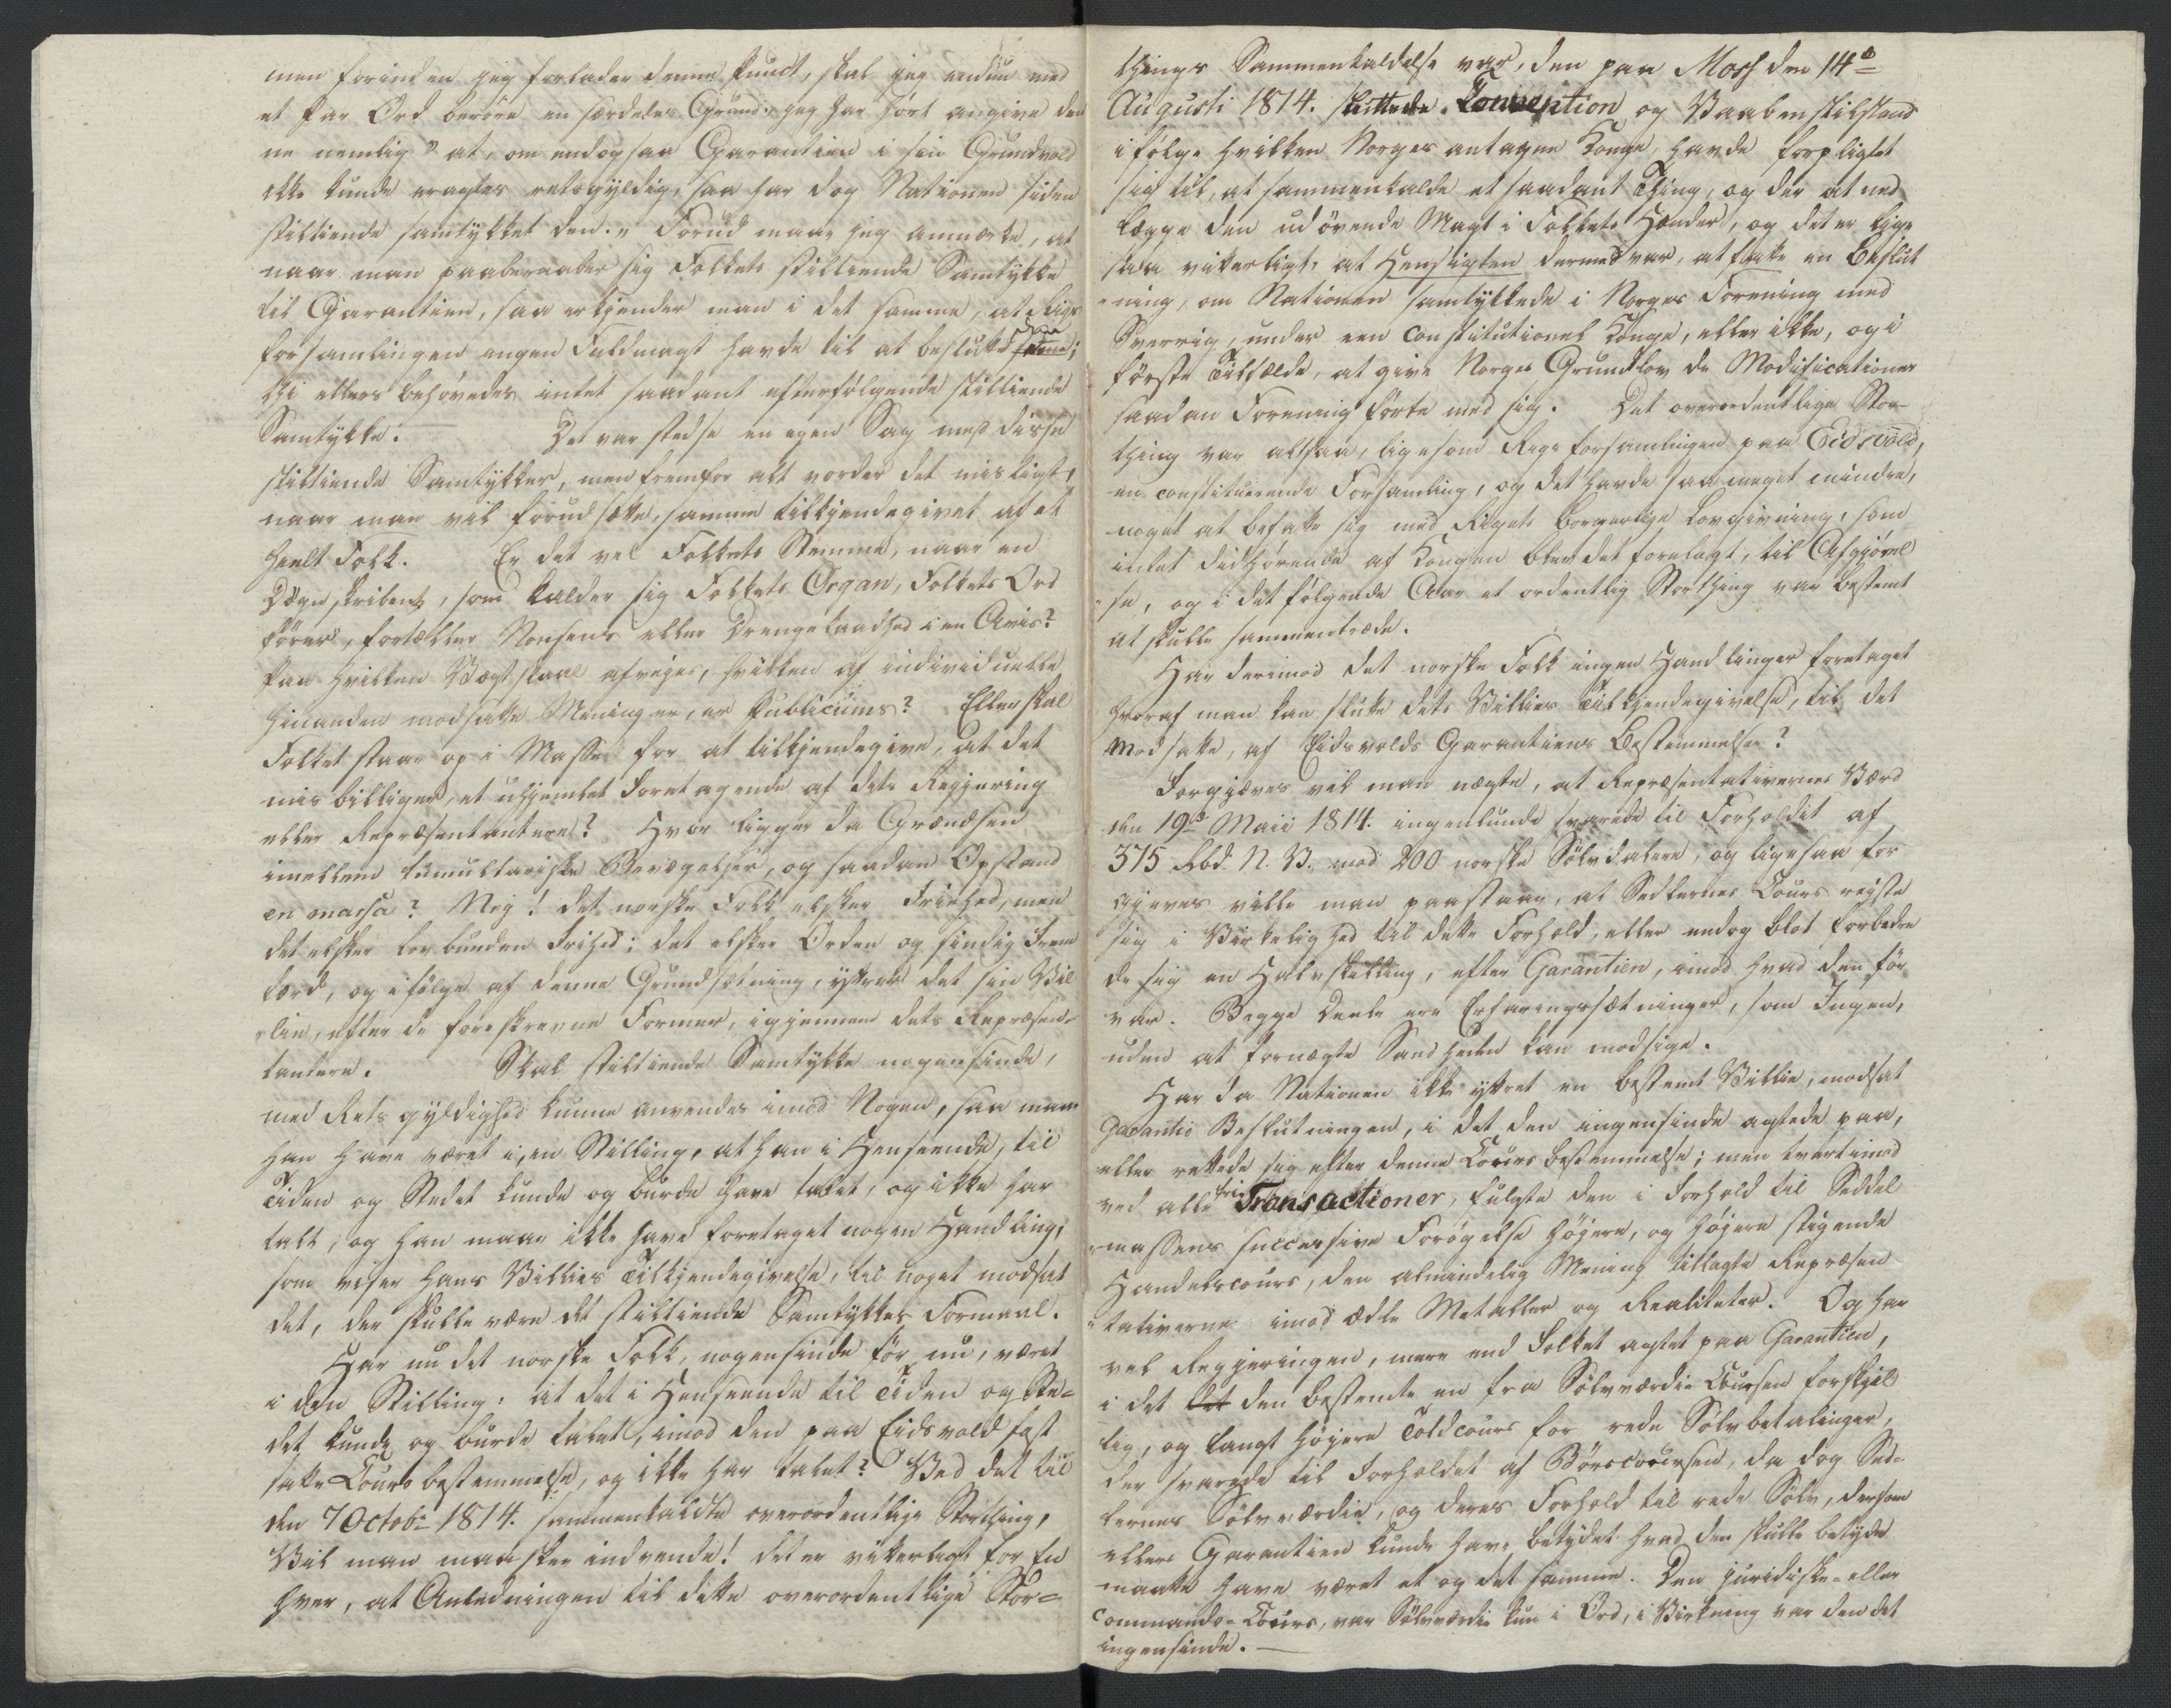 men forinden jeg forlader denne Punct, skal jeg endnu med
et Par Ord berøre en særdeles Grund, jeg har hørt angive den
ne nemlig "at, om endogsaa Garantien i sin Grundvold
ikke kunde eragtes retsgyldig, saa har dog Nationen siden
stiltiende samtykket den." Forud maae jeg anmærke, at
naar man paaberaaber sig Folkets stiltiende Samtykke
til Garantien, saa erkjender man i det samme, at Rigs
forsamlingen ingen Fuldmagt havde til at beslutte
thi ellers behøvedes intet saadant efterfølgende stiltiende
Samtykke. Det var stedse en egen Sag med disse
stiltiende Samtykker, men fremfor alt vorder det misligt,
naar man vil forudsætte, samme tilkjendegivet af et
heelt Folk. Er det vel Folkets Stemme, naar en
Døgnskribent, som kalder sig Folkets Organ, Folkets Ord
fører, fortæller Nonsens eller Drengekaadhed i en Avis?
Paa hvilken Vægtskaal afvejes, hvilken af individuelle
hinanden modsatte Meninger, er Publicums? Eller skal
Folket staae op i Masse for at tilkjendegive, at det
misbilliger, et uhjemlet Foretagende af dets Regjering
eller Repræsentantere? Hvor ligger da Grændsen
imellem tumultariske Bevægelser, og saadan Opstand
en massa? Nej! det norske Folk elsker Friehed, men
det elsker lovbunden Frihed; det elsker Orden og sindig Frem
færd, og ifølge af denne Grundsætning, yttrer det sin Vil
lie, efter de foreskrevne Former, igjennem dets Repræsen-
tantere. Skal stiltiende Samtykke nogensinde,
med Rets gyldighed kunne anvendes imod Nogen, saa maae
han have været i, en Stilling, at han i Henseende, til
Tiden og Stedet kunde og burde have talet, og ikke har
talt, og han maae ikke have foretaget nogen Handling,
som viser hans Villies Tilkjendegivelse, til noget modsat
det, der skulle være det stiltiende Samtykkes Formaal.
Har nu det norske Folk, nogensinde før nu, været
i den Stilling: at det i Henseende til Tiden og Ste-
det kunde og burde talet, imod den paa Eidsvold fast
satte Coursbestemmelse, og ikke har talet? Ved det til
den 7 Octobr 1814. sammenkaldte overordentlige Storthing,
Vil man maaskee indvende! det er vitterligt for En
hver, at Anledningen til dette overordentlige Stor-
things Sammenkaldelse var, den paa Moss den 14de
Augusti 1814. sluttede Convention og Vaabenstilstand
ifølge hvilken Norges antagne Konge, havde forpligtet
sig til, at sammenkalde et saadant Thing, og der at ned
lægge den udøvende Magt i Folkets Hænder, og det er lige
saa vitterligt, at Hensigten dermed var, at fatte en Beslut
ning, om Nationen samtykkede i Norges Forening med
Sverrig, under een constitutionel Konge, eller ikke, og i
første Tilfælde, at give Norges Grundlov de Modificationer
saadan Forening førte med sig. Det overordentlige Stor-
thing var altsaa, ligesom Rigsforsamlingen paa Eidsvold,
en constituerende Forsamling, og det havde saa meget mindre,
noget at befatte sig med Rigets borgerlige Lovgivning, som
intet didhørende af Kongen blev det forelagt, til Afgjørel
se, og i det følgende Aar et ordentlig Storthing var bestemt
at skulle sammentræde.
Har derimod det norske Folk ingen Handlinger foretaget
hvoraf man kan slutte dets Villies Tilkjendegivelse, til det
modsatte, af Eidsvolds Garantiens Bestemmelse?
Forgjæves vil man nægte, at Repræsentativernes Værd
den 19de Maii 1814. ingenlunde svarede til Forholdet af
375 Rbd. N. V. mod 200 norske Sølvdalere, og ligesaa for
gjæves ville man paastaae, at Sedlernes Cours reiste
sig i Virkelighed til dette Forhold, eller endog blot forbedre
de sig en Halvskilling, efter Garantien, imod hvad den før
var. Begge Deele ere Erfaringssætninger, som Ingen,
uden at fornægte Sandheden kan modsige.
Har da Nationen ikke yttret en bestemt Villie, modsat
Garantie Beslutningen, i det den ingensinde agtede paa,
eller rettede sig efter denne Cours bestemmelse; men tvertimod
ved alle frie Transactioner, fulgte den i Forhold til Seddel
massens successive Forøgelse højere, og højere stigende
Handelscours, den almindelig Mening tillagte Repræsen
tativerne imod ædle Metaller og Realiteter. Og har
vel Regjeringen, mere end Folket agtet paa Garantien,
i det det den bestemte en fra Sølvværdie Coursen forskjel
lig, og langt højere Toldcours for rede Sølvbetalinger,
der svarede til Forholdet af Børscoursen, da dog Sed-
lernes Sølvværdie, og deres Forhold til rede Sølv, dersom
ellers Garantien kunde have betydet hvad den skulle betyde
maatte have været et og det samme. Den juridiske- eller
Commando-Cours, var Sølvværdie kun i Ord, i Virkning var den det
ingensinde.